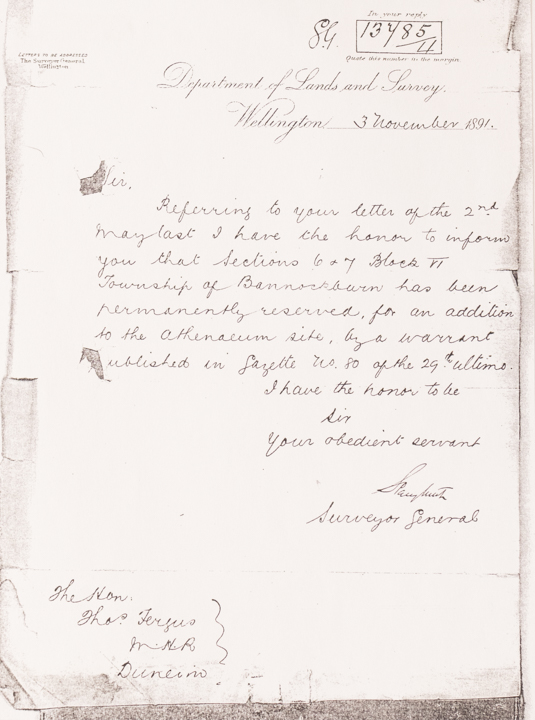 In your reply
S.G. 13485/4
Quote this number in the margin
LETTERS TO BE ADDRESSED
The Surveyor General
Wellington
Department of Lands and Survey.
Wellington 3 November 1891.
Sir,
Referring to your letter of the 2nd
May last I have the honor to inform
you that Sections 6 & 7 Block VI
Township of Bannockburn has been
permanently reserved, for an addition
to the Athenaeum site, by a warrant
ublished in Gazette No. 80 of the 29th ultimo.
I have the honor to be
Sir
Your obedient servant
Surveyor General
The Hon.
Thos Fergus
M.H.R
Dunedin